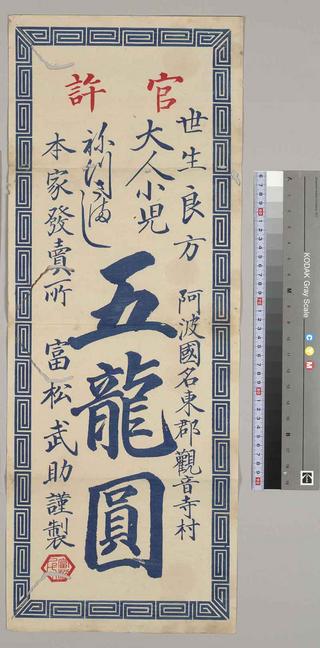 官許
世生良方
阿波國名東郡觀音寺村
大人小児
五龍圓
本家發賣所
富松武助謹製
KODAK Gray Scale
C
Y
M